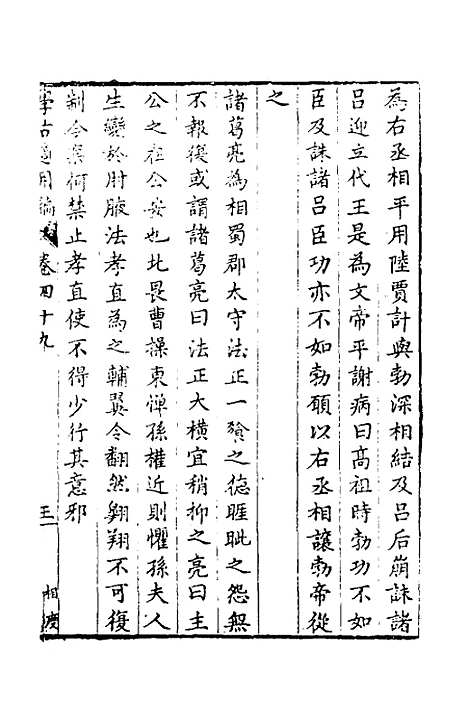 為右丞相平用陸賈計與勃深相結及呂后崩誅諸
呂迎立代王是為文帝平謝病曰高祖時勃功不如
臣及誅諸呂臣功亦不如勃願以右丞相讓勃帝從
之
諸葛亮為相蜀郡太守法正一飱之德睚眦之怨無
不報復或謂諸葛亮曰法正大橫宜稍抑之亮曰主
公之在公安也北畏曹操東憚孫權近則懼孫夫人
生變於肘腋法孝直為之輔翼令翻然翱翔不可復
制今柰何禁止孝直使不得少行其意邪
學古適用編 卷四十九 三 相度